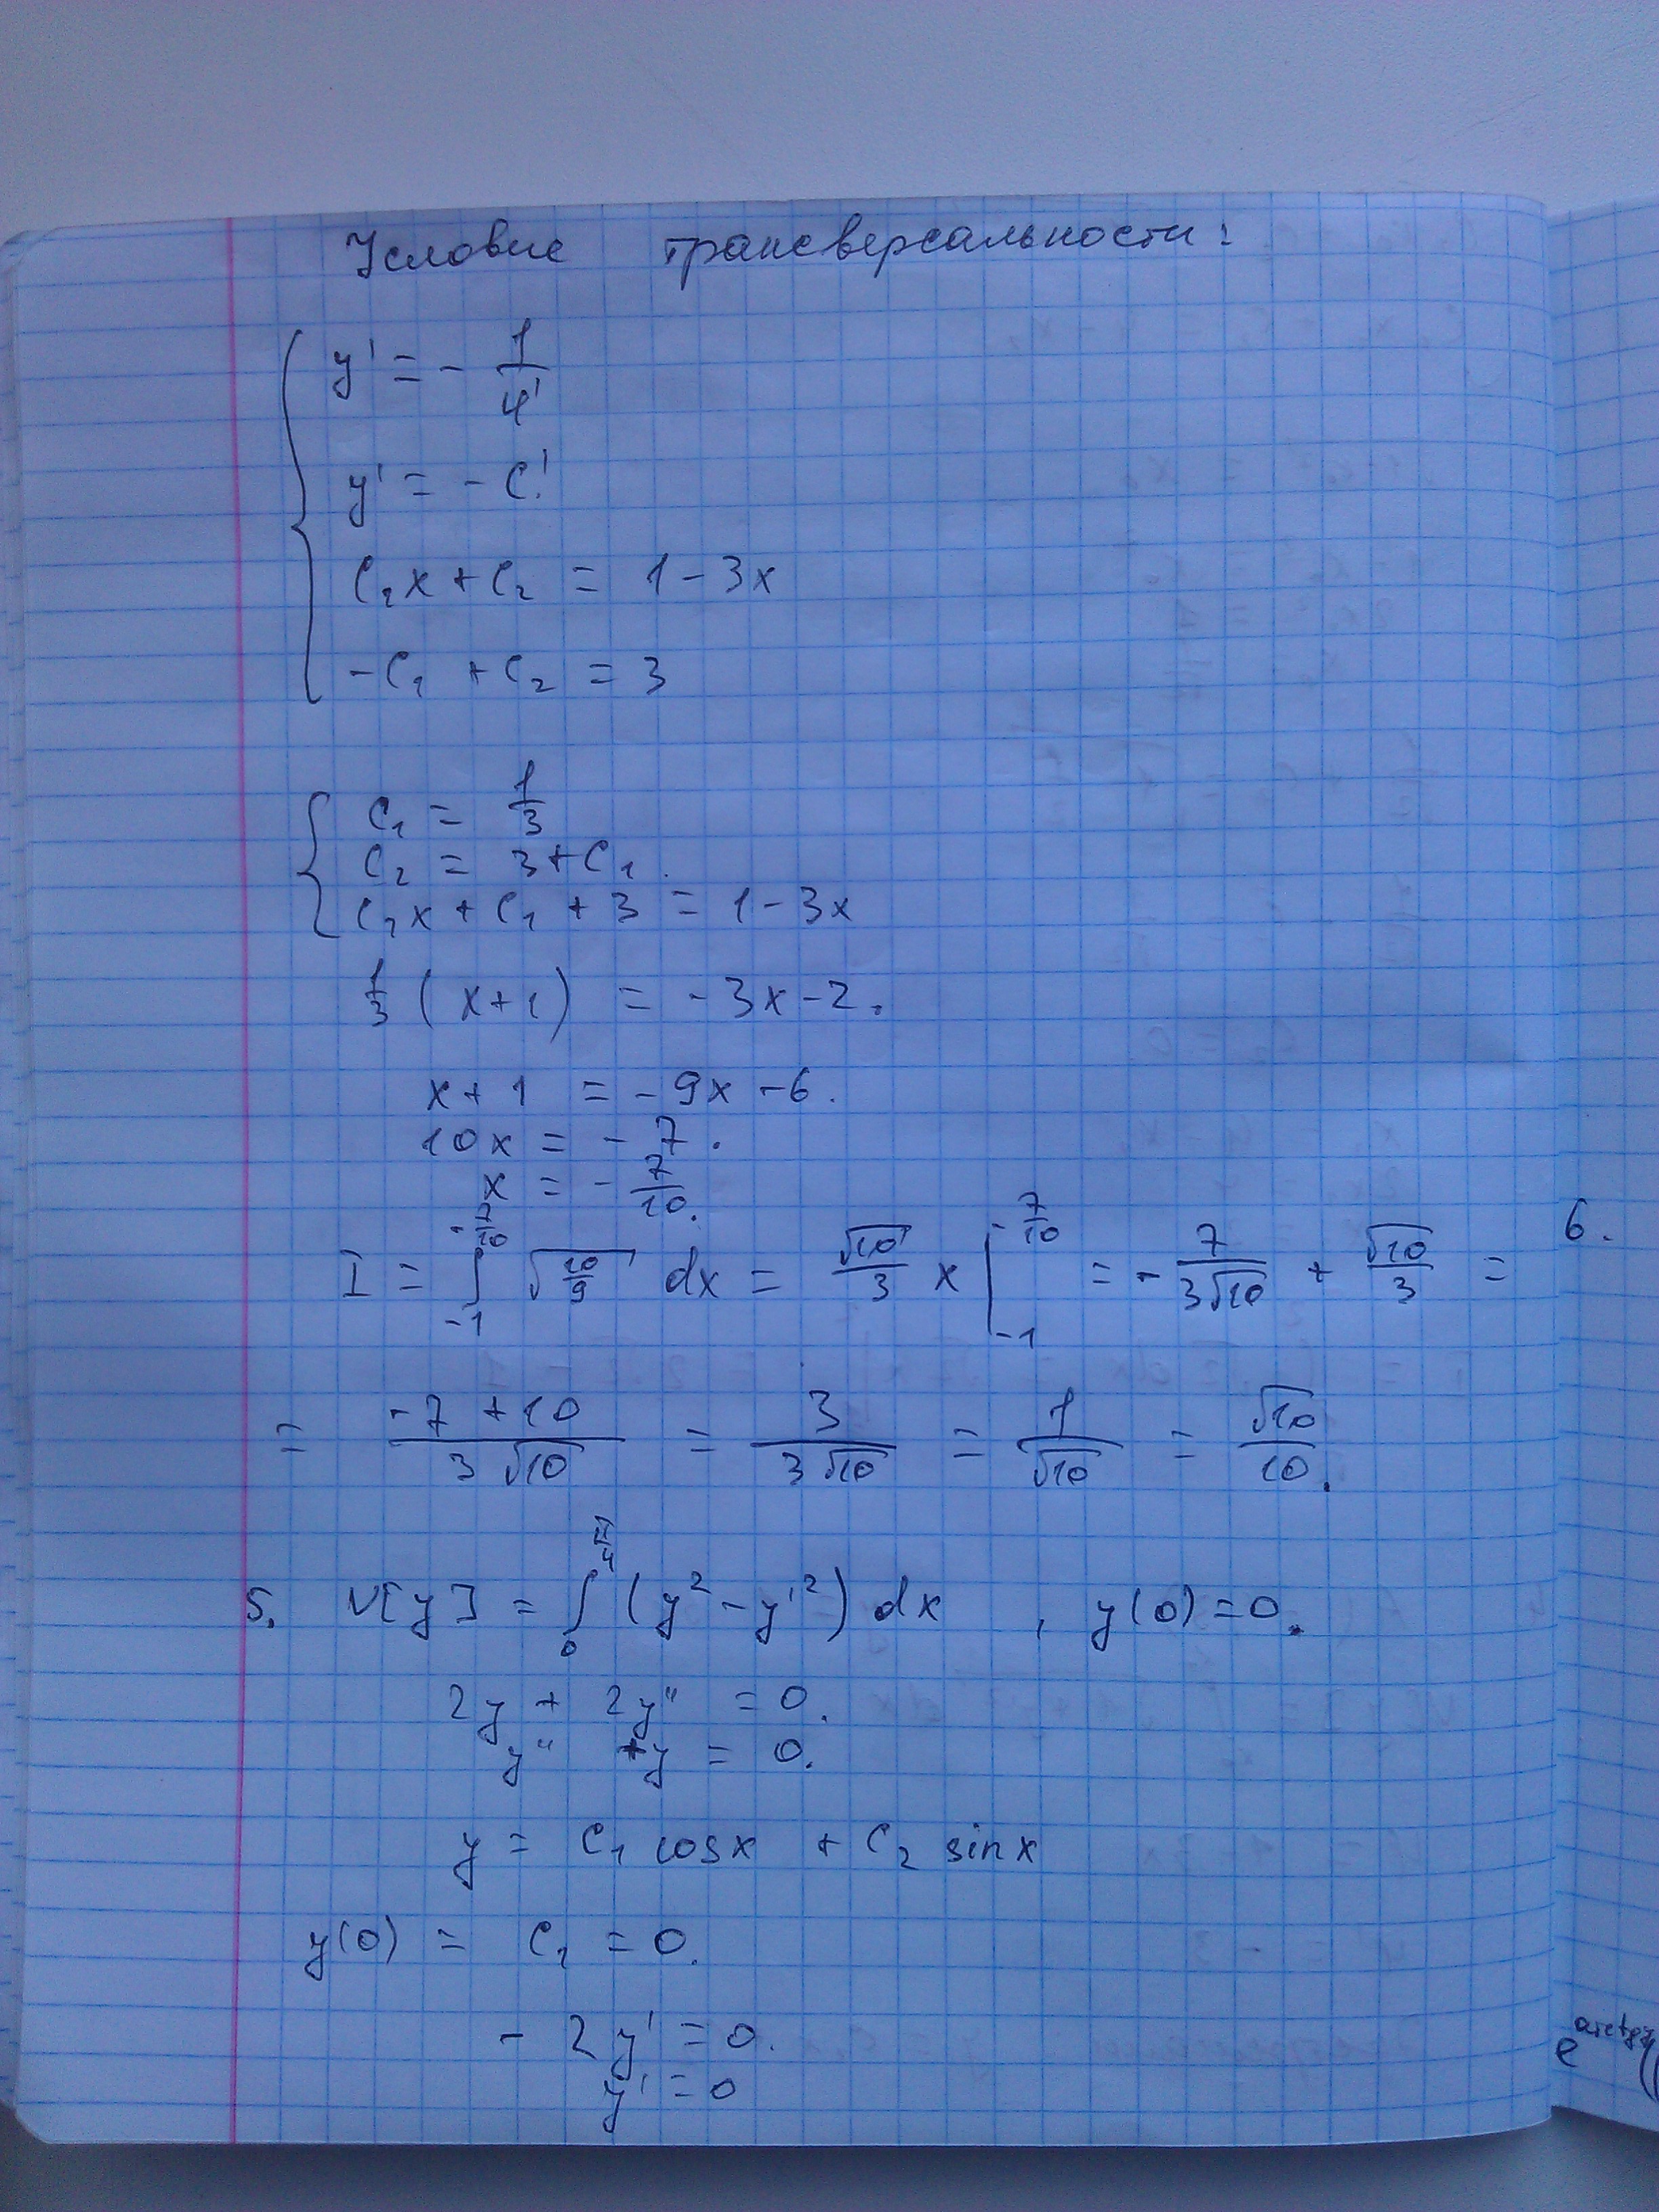 Условие трансверсальности:
y' = - 1/φ'
y' = - C!
C₁x + C₂ = 1 - 3x
-C₁ + C₂ = 3
C₁ = 1/3
C₂ = 3 + C₁.
C₁x + C₁ + 3 = 1 - 3x
1/3 (x+1) = -3x - 2.
x + 1 = -9x - 6.
10x = -7.
x = -7/10.
I = ∫_{-1}^{-7/10} √(10/9) dx = √10/3 x |_{-1}^{-7/10} = -7/(3√10) + √10/3 =
= (-7+10)/(3√10) = 3/(3√10) = 1/√10 = √10/10.
5. V[y] = ∫_0^{π/4} (y² - y'²) dx , y(0) = 0.
2y + 2y'' = 0.
y'' + y = 0.
y = C₁ cosx + C₂ sinx
y(0) = C₁ = 0.
- 2y' = 0.
y' = 0
6.